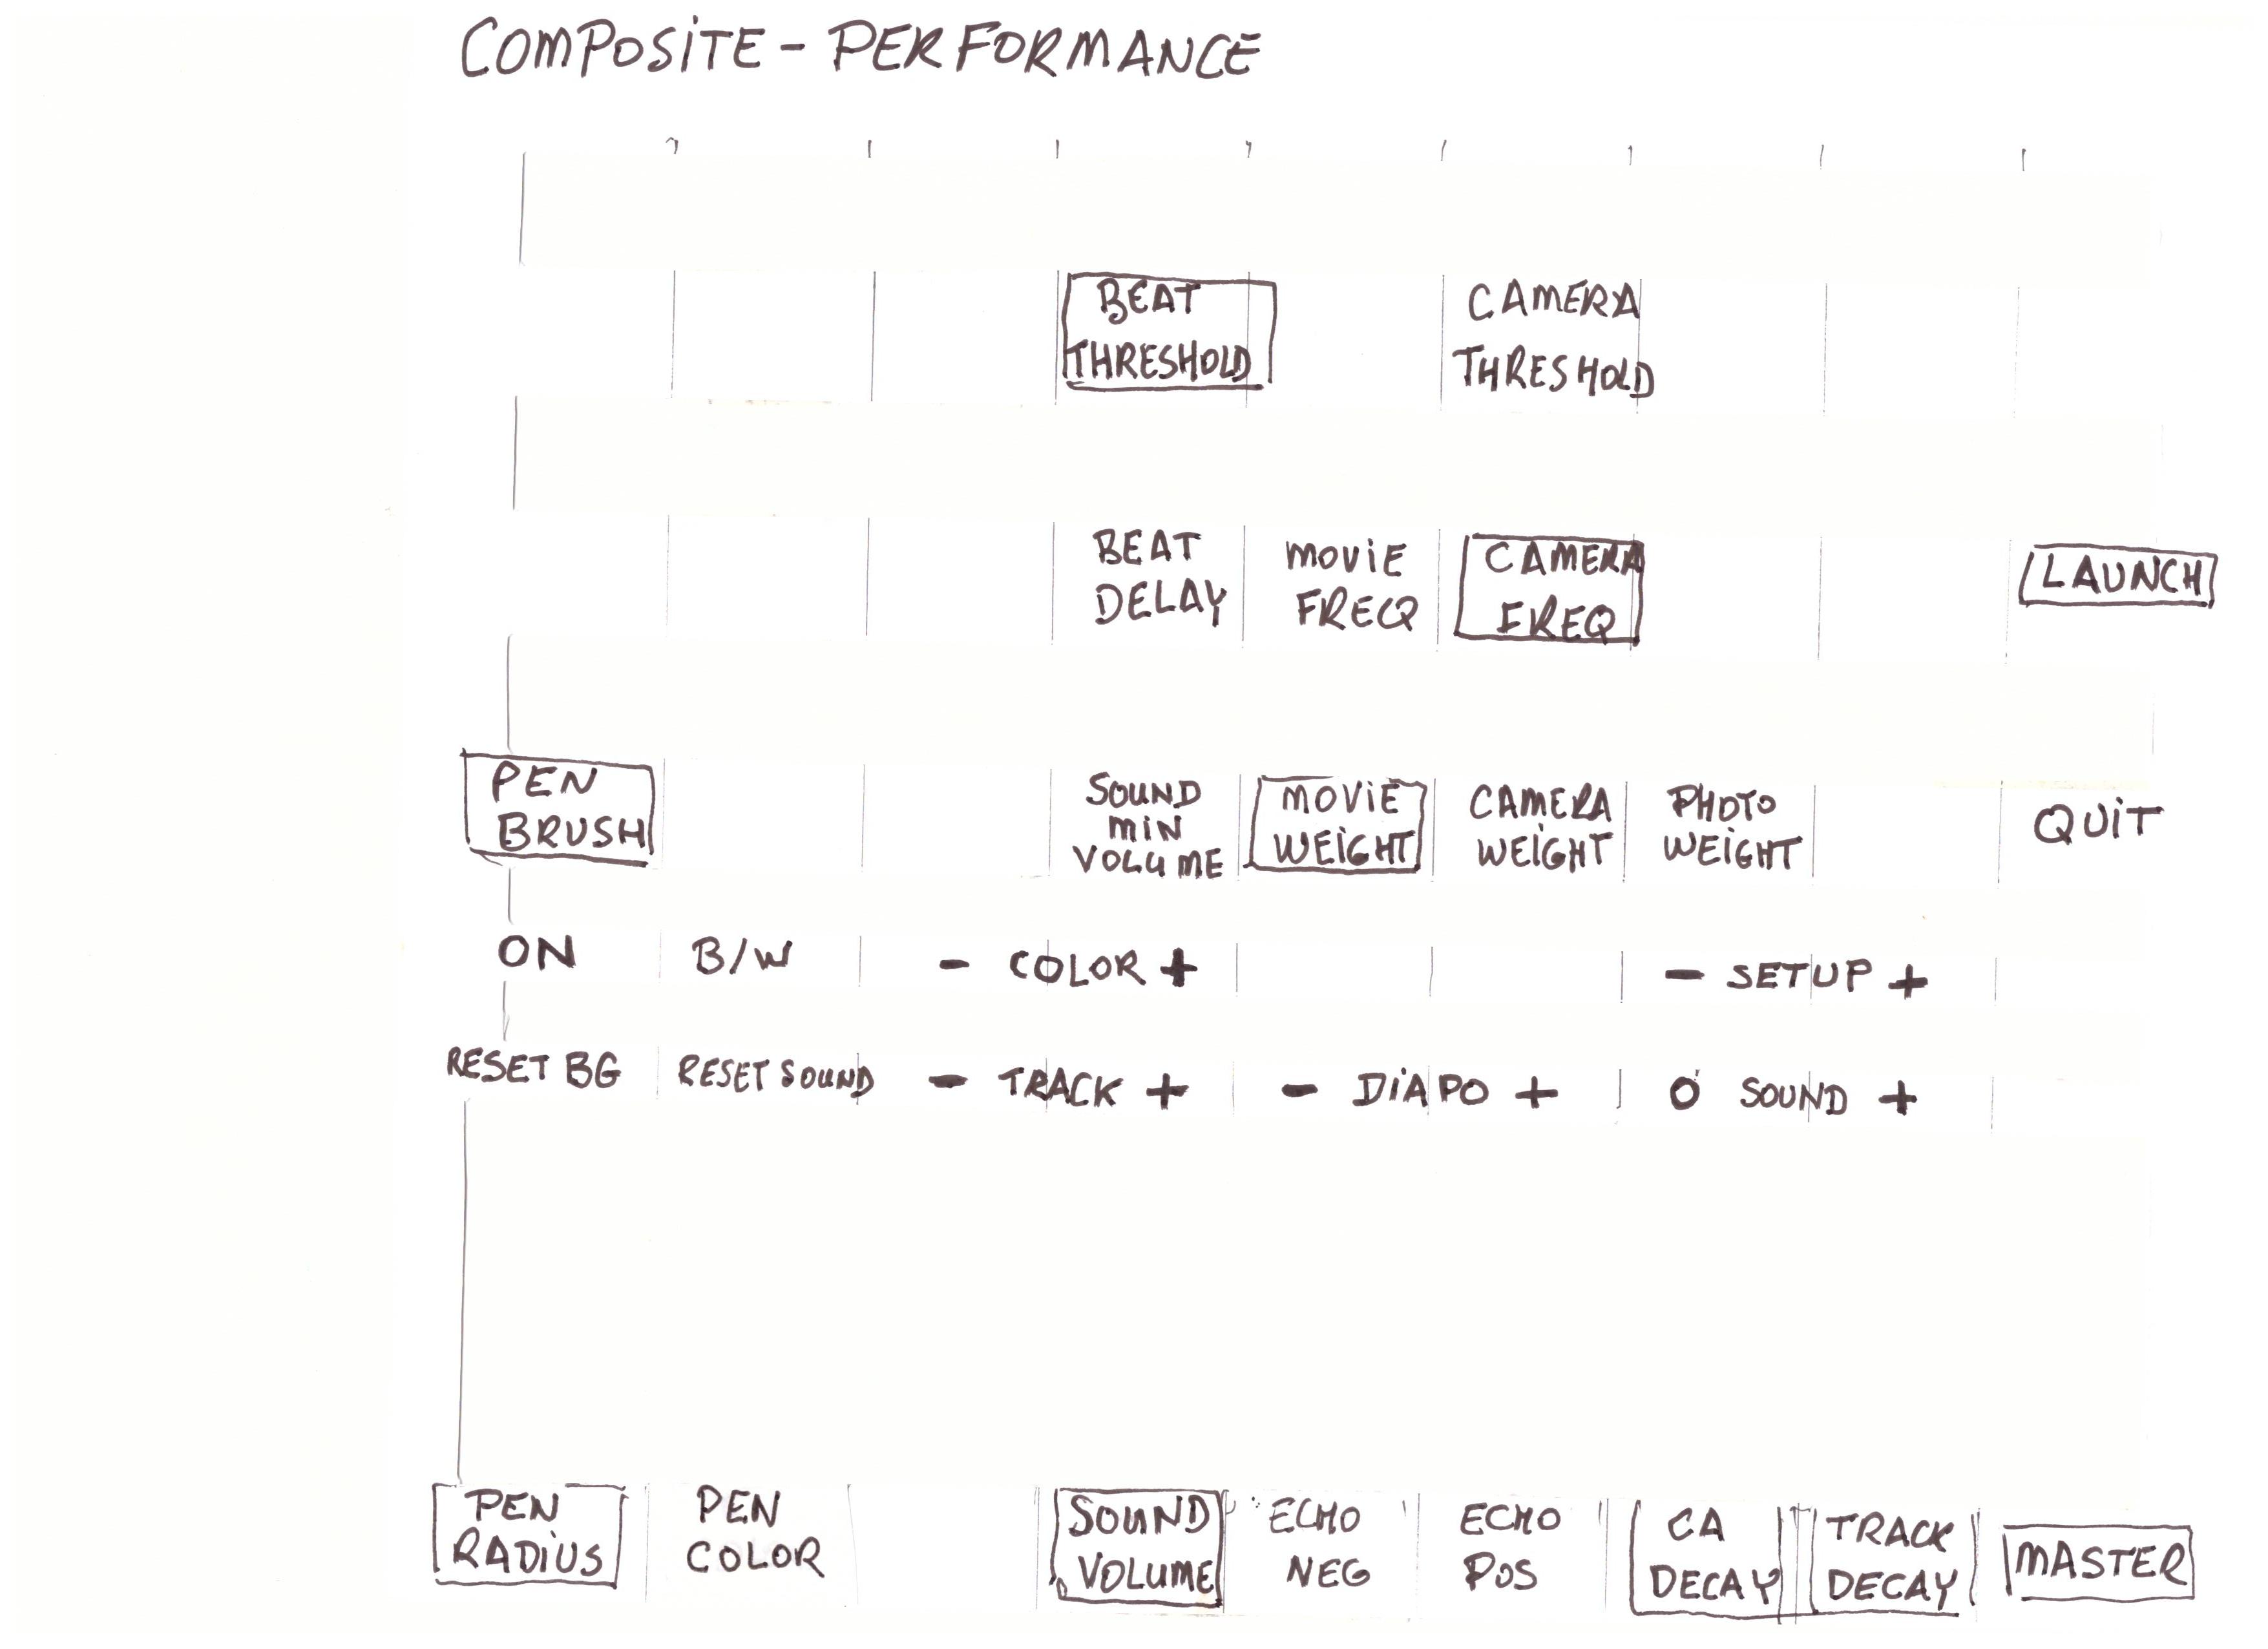 COMPOSITE - PERFORMANCE
BEAT THRESHOLD
CAMERA THRESHOLD
BEAT DELAY
MOVIE FREQ
CAMERA FREQ
LAUNCH
PEN BRUSH
SOUND MIN VOLUME
MOVIE WEIGHT
CAMERA WEIGHT
PHOTO WEIGHT
QUIT
ON
B/W
- COLOR +
- SETUP +
RESET BG
RESET SOUND
- TRACK +
- DIAPO +
O SOUND +
PEN RADIUS
PEN COLOR
SOUND VOLUME
ECHO NEG
ECHO POS
CA DECAY
TRACK DECAY
MASTER